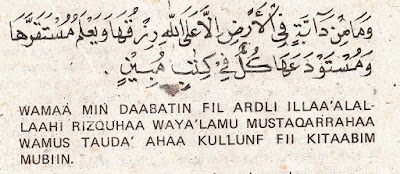 وَمَا مِنْ دَآبَّةٍ فِى الْأَرْضِ اِلَّا عَلَى اللّٰهِ رِزْقُهَا وَيَعْلَمُ مُسْتَقَرَّهَا
وَمُسْتَوْدَعَهَا كُلٌّ فِيْ كِتٰبٍ مُبِيْنٍ .
WAMAÁ MIN DAABATIN FIL ARDLI ILLAA'ALAL-
LAAHI RIZQUHAA WAYA'LAMU MUSTAQARRAHAA
WAMUS TAUDA' AHAA KULLUNF FII KITAABIM
MUBIIN.